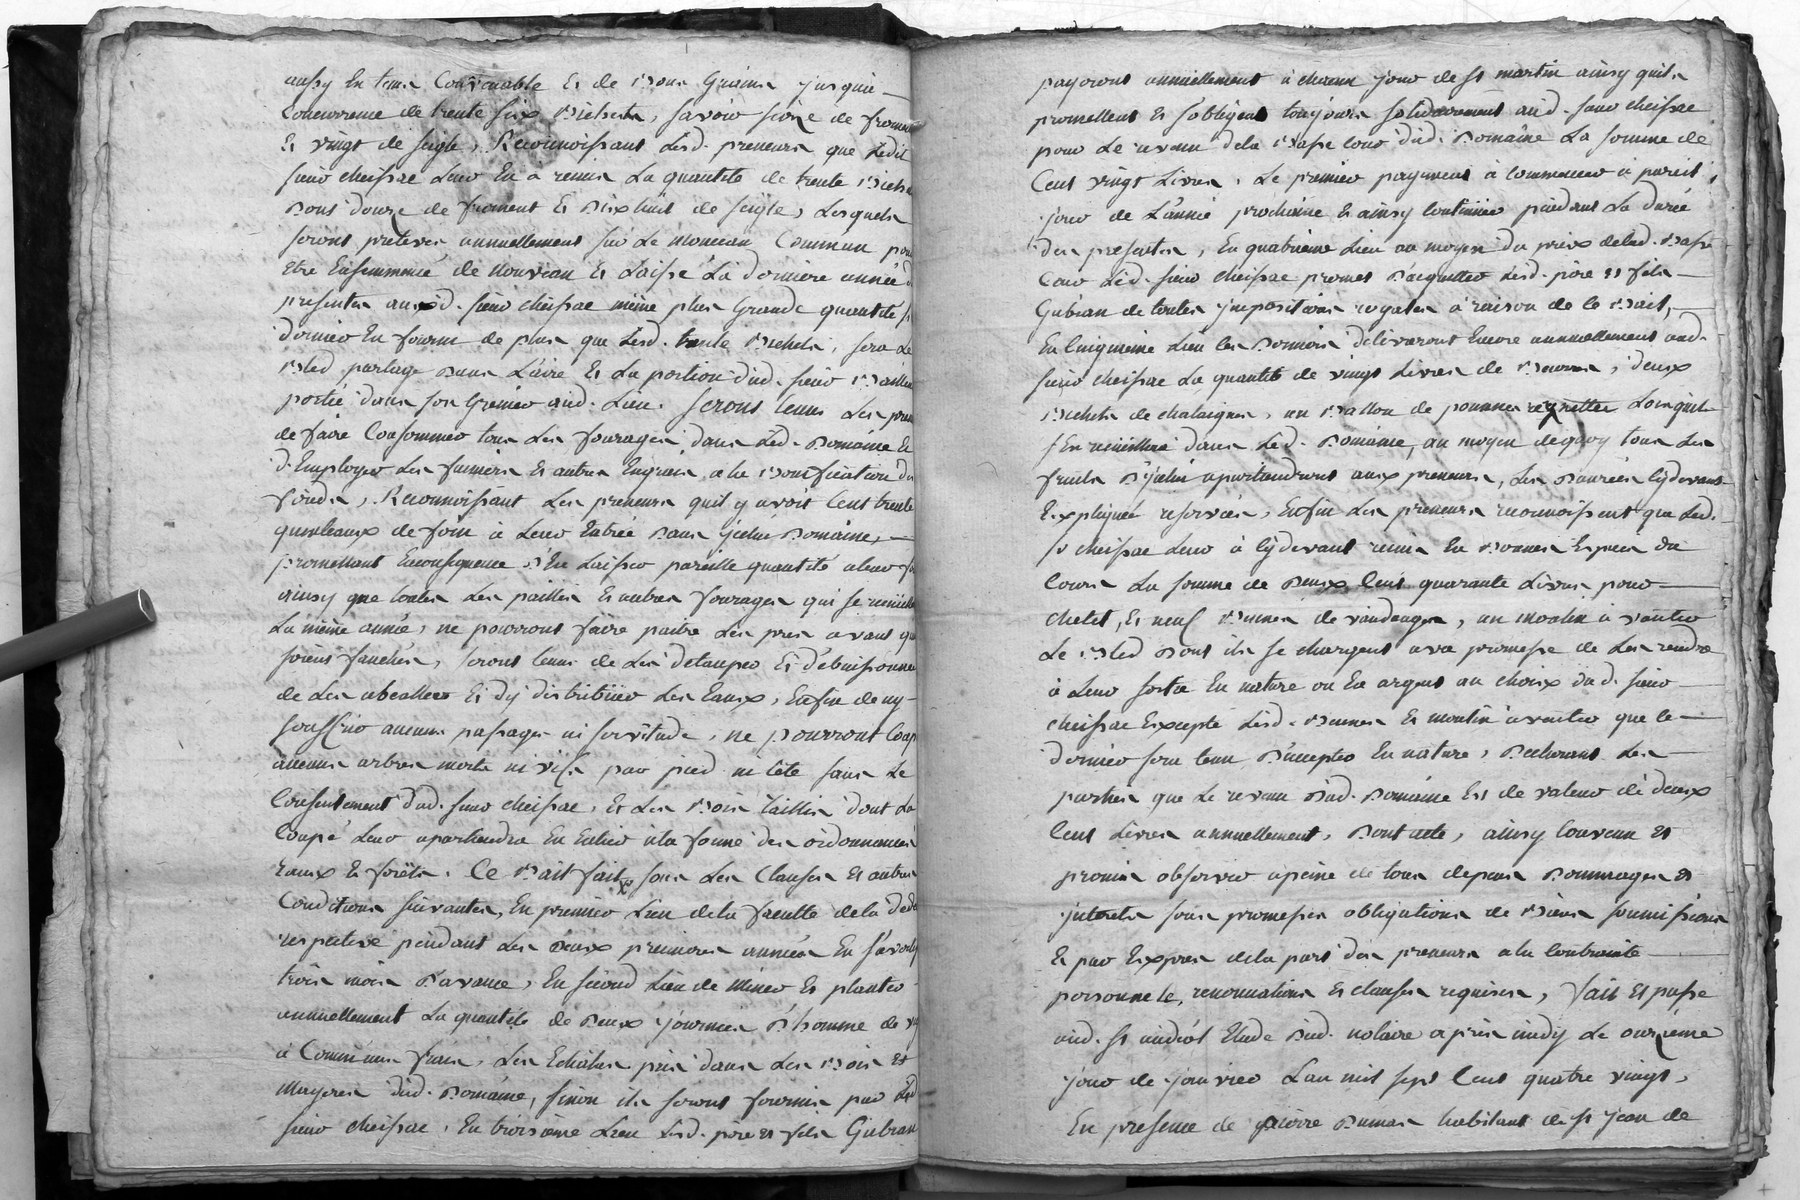 aussy En tems Convenable Et de Bons Grains jusqu'a
Concurrence de trente six Bichets, savoir seize de froment
Et vingt de seigle, Reconnoissant Lesd. preneurs que Ledit
sieur cheissac Leur En a remis La quantité de trente Bichets
Dont douze de froment Et Dix huit de seigle, Lesquels
seront prelevés annuellement sur Le monceau Commun pour
Etre Ensemmencé de nouveau Et Laissé La derniere année des
presentes audd. sieur cheissac même plus Grande quantité si
dernier En fournit de plus que Lesd. trente Bichets, sera Le
Bled partagé Dans L'aire Et La portion dud. sieur Bailleur
portée dans son Grenier aud. Lieu. seront tenus Les preneurs
de faire Consommer tous Les fourages dans Led. Domaine Et
d'Employer Les fumiers Et autres Engrais a la Bonification des
fonds, Reconnoissant Les preneurs quil y avoit Cent trente
quinteaux de foin à Leur Entrée Dans jcelui Domaine,
promettant Enconsequence D'En Laisser pareille quantité aleur
ainsy que toutes Les pailles Et autres fourages qui se
La même année, ne pourront faire paitre Les prés avant qu
soient fauchés, seront tenus de Les detauper Et débuissonner
de Les abealler Et d'y distribüer Les Eaux, Enfin de ny
souffrir aucuns passages ni servitude, ne pourront Couper
aucuns arbres morts ni vifs par pied ni tête sans Le
Consentement dud. sieur cheissac, Et Les Bois Taillis dont La
Coupe Leur apartiendra En Entier a la forme des ordonnances
Eaux Et forêts. Ce Bail fait sous Les Clauses Et autres
Conditions suivantes, En premier Lieu dela faculté dela
respective pendant Les deux premieres années En s'avertissant
trois mois D'avance, En second Lieu de miner Et planter
annuellement La quantité de Deux journées D'homme de
à Communs frais, Les Echalas pris dans Les Bois Et
mayeres dud. Domaine, sinon ils seront fournis par Led.
sieur cheissac, En troisième Lieu Lesd. pere Et fils Gubian
payeront annuellement à chacun jour de st martin ainsy quils
promettent Et s'obligent toujours solidairement aud. sieur cheissac
pour Le revenu dela Basse Cour dud. Domaine La somme de
Cent vingt Livres, Le premier payement à Commencer à pareil
jour de L'année prochaine Et ainsy Continüer pendant La durée
des presentes, En quatrieme Lieu au moyen du prix delad. Basse
Cour Led. sieur cheissac promet D'acquitter Lesd. pere Et fils
Gubian de toutes jmpositions royales à raison de ce Bail,
En Cinquieme Lieu Les Derniers délivreront Encore annuellement aud.
sieur cheissac La quantité de vingt Livres de Beurre, deux
Bichets de chataignes, un Ballon de pommes reynettes Lorsquil
s'En recüeillera dans Led. Domaine, au moyen dequoy tous Les
fruits D'jcelui apartiendront aux preneurs, Les Danrées Cydevant
Expliquées reservées, Enfin Les preneurs reconnoissent que Led.
sr cheissac Leur à Cydevant remis En Bonnes Especes du
Cours La somme de Deux Cent quarante Livres pour
chetel, Et neuf Bennes de vandanges, un moulin à vanter
Le Bled Dont ils se chargent avec promesse de Les rendre
à Leur sortie En nature ou En argent au choix dud. sieur
cheissac Excepté Lesd. Bennes Et moulin à vanter que ce
dernier sera tenu D'accepter En nature, Declarant Les
parties que Le revenu Dud. Domaine Est de valeur de deux
Cent Livres annuellement, Dont acte, ainsy Convenu Et
promis observer apeine de tous depens Dommages Et
jnterets sous promesses obligations de Biens soumissions
Et par Exprés dela part des preneurs a la Contrainte
personnelle, renonciations Et clauses requises, fait Et passé
aud. st andéol Etude Dud. notaire après midy Le onzieme
jour de janvier L'an mil sept Cent quatre vingt,
En presence de pierre Dumas habitant de st jean de